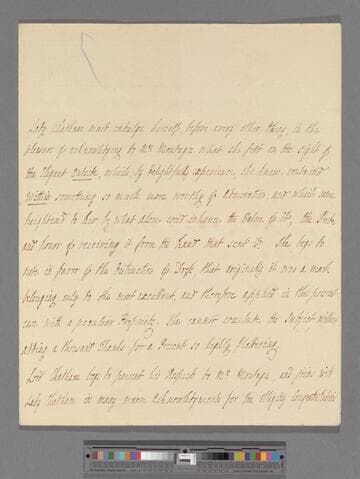 Lady Chatham must indulge herself, before every other thing, in the
pleasure of acknowledging to Mrs Montagu what she felt on the sight of
the Elegant outside, which, by delightfull experience she knew, contain'd
within something so much more worthy of Admiration, and which came
heighten'd to Her by what alone cou'd enhance the Value of it, the Pride
and honor of receiving it from the hand that sent it. She begs to
note in favor of the Distinction of Dress that originally it was a mark
belonging only to the most excellent, and therefore applied in the present
case with a peculiar Propriety. She cannot conclude the Subject without
adding a thousand Thanks for a Present so highly flattering.
Lord Chatham begs to present his Respects to Mrs Montagu, and joins with
Lady Chatham in many warm Acknowledgments for the obliging Congratulations